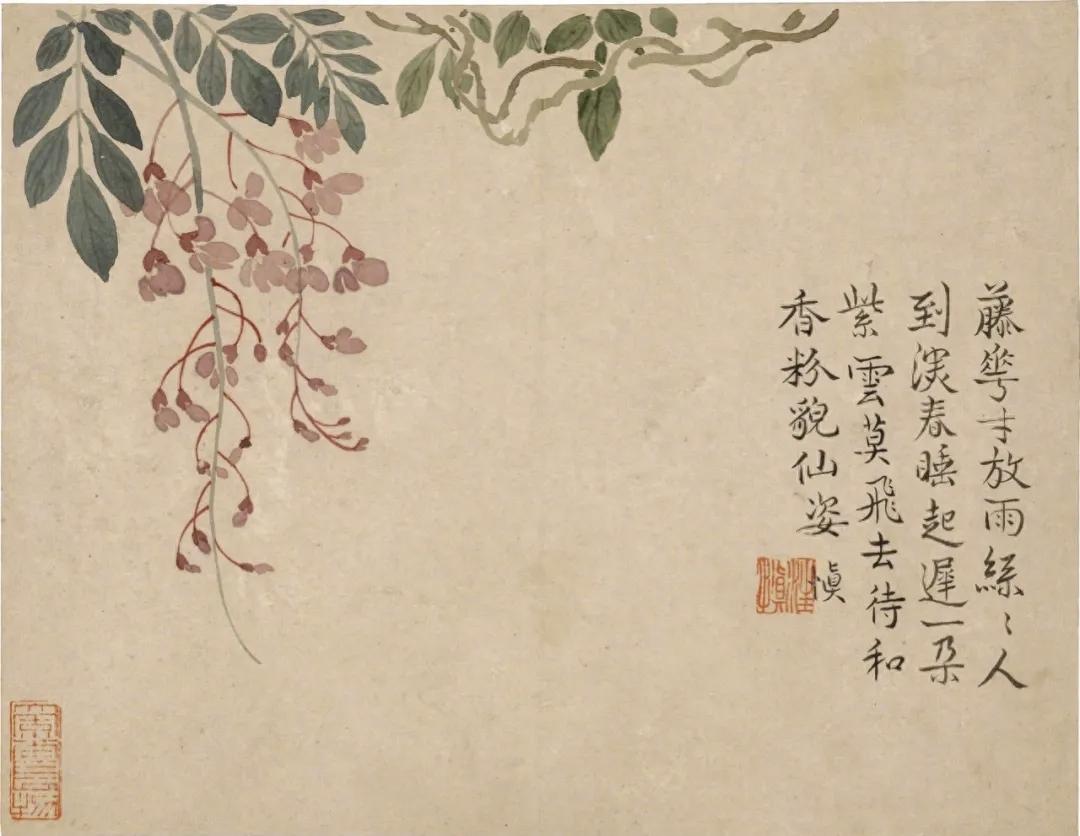 藤華才放雨絲〻人
到深春睡起遲一朵
紫雲莫飛去待和
香粉貌仙姿
慎